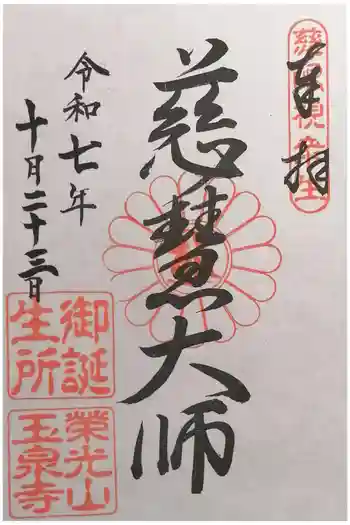 慈眼視衆生
奉拝
慈慧大師
令和七年
十月二十三日
御誕
生所
榮光山
玉泉寺